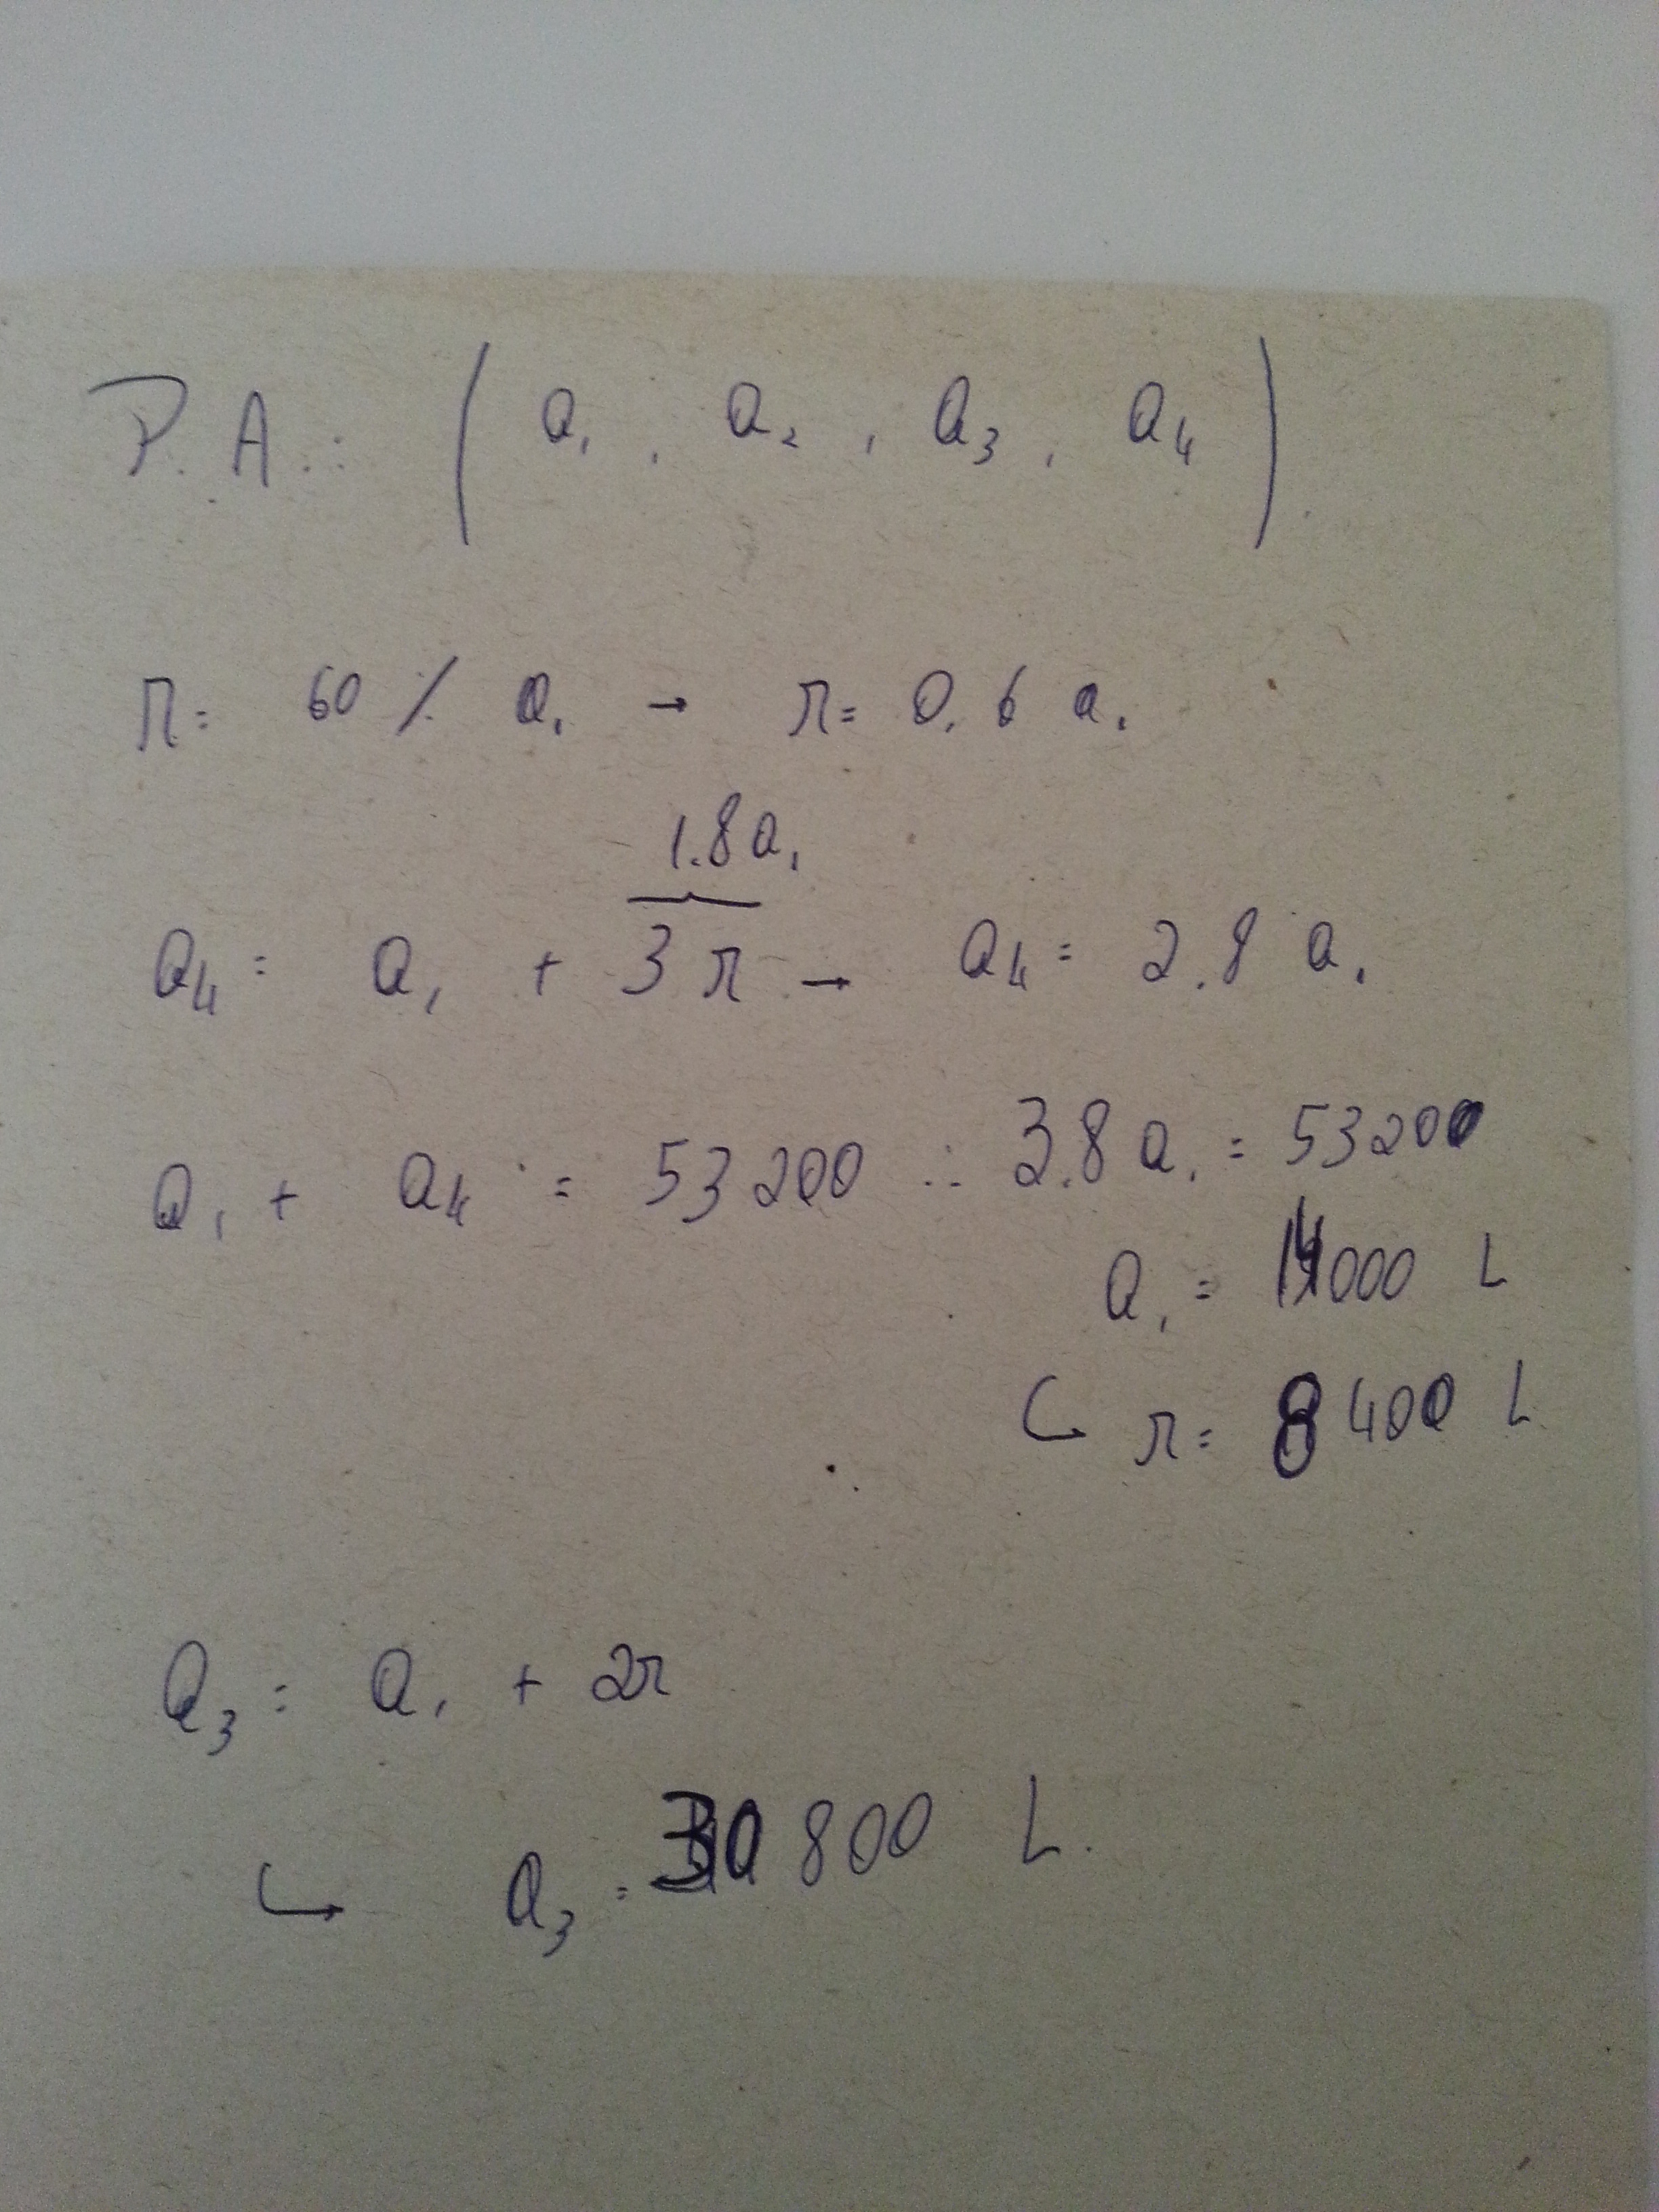 P.A.: (a₁, a₂, a₃, a₄)
r = 60 % a₁ → r = 0.6 a₁
1.8a₁
a₄ = a₁ + 3r → a₄ = 2.8 a₁
a₁ + a₄ = 53200 ∴ 3.8 a₁ = 53200
a₁ = 14000 L
↳ r = 8400 L
a₃ = a₁ + 2r
↳ a₃ = 30800 L.